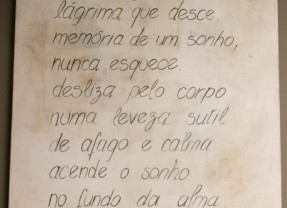 lágrima que desce.
memória de um sonho,
nunca esquece.
desliza pelo corpo
numa leveza sutil
de afago e calma
acende o sonho
no fundo da alma